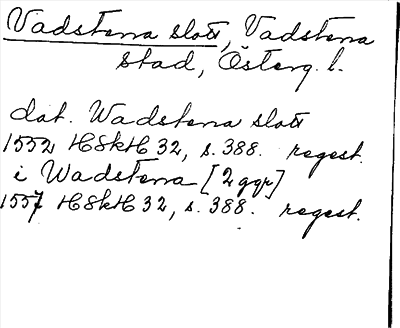 Vadstena slott, Vadstena
stad, Österg. l.
dat. Wadstena slott
1552 HSkH 32, s. 388. regest.
i Wadstena [2 ggr]
1557 HSkH 32, s. 388. regest.